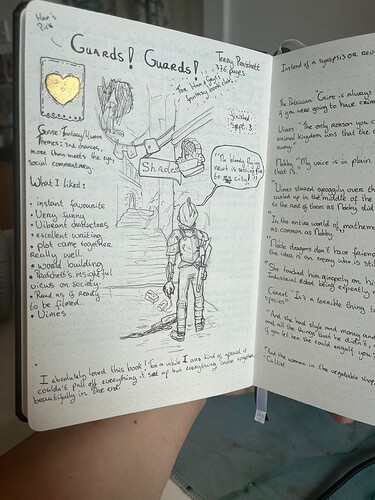 Han's
Pick
GUARDS! GUARDS!
Terry Pratchett
376 pages
The Han & Gav's
fantasy book club
finished
Sept. 3
Genre: Fantasy/Humor
Themes: 2nd chances,
more than meets the eye,
social commentary.
Shades
What I liked:
• instant favourite
• Very funny
• Vibrant characters
• excellent writing
• plot came together
really well.
• world building
• Pratchett's insightful
views on society
• Read as if ready
to be filmed.
• Vimes
I absolutely loved this book! For a while I was kind of afraid it
couldn't pull off everything it set up but everything came together
beautifully in the end.
Instead of a synopsis or rev
The Patrician: "Crime is always
if you were going to have crime
Vimes: "The only reason you c
animal kingdom was that the
Nobby: "My voice is in plain
that is."
Vimes stared
curled up in the middle of the
to the rest of them as Nobby did
"In the entire world of mathem
as common as Nobby."
"Noble dragons don't have friend
the idea is an enemy who is still
"She touched him gingerly on his
Industrial Robot being expertly
Carrot: "It's a terrible thing to
species"
"And the hard style and money and
and all the things that he didn't
if you let her, she could engulf you
"And the woman in the vegetable shop